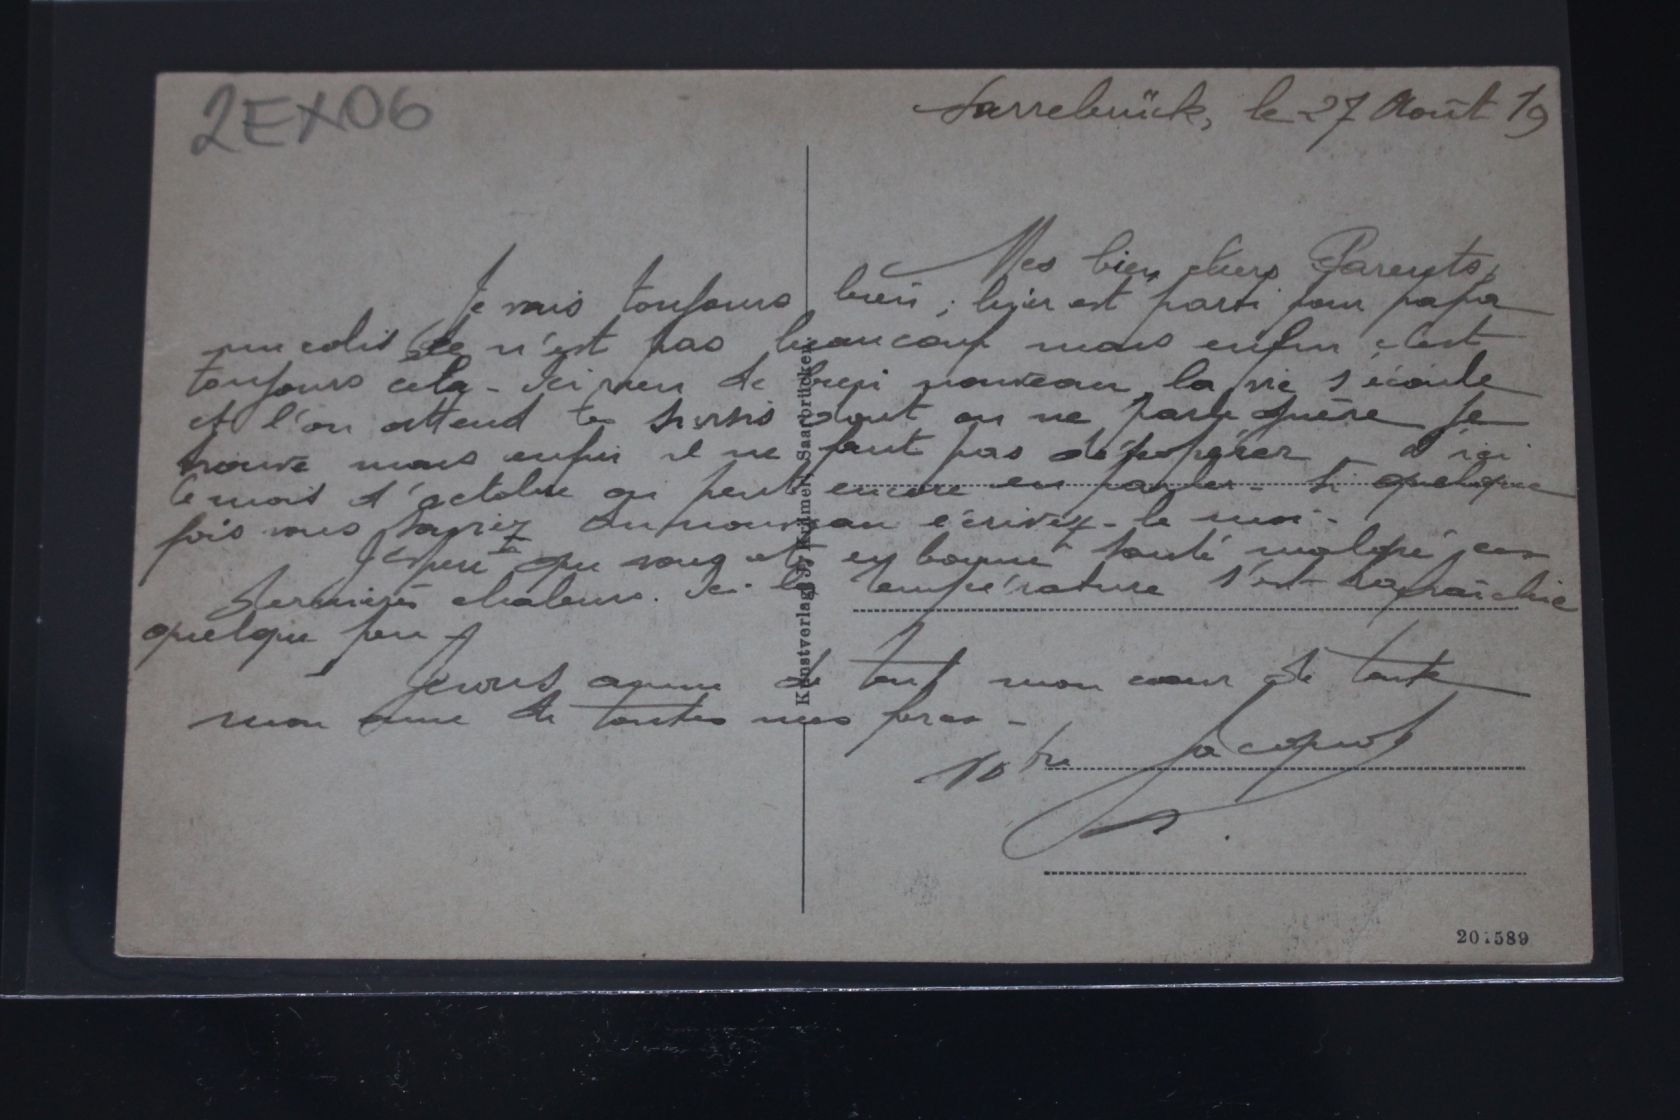 2EX06
Sarrebrück, le 27 Août 19
Mes bien chers Parents,
Je vais toujours bien ; hier est parti pour papa
un colis. Ce n'est pas beaucoup mais enfin c'est
toujours cela - Ici rien de bien nouveau, la vie s'écoule
et l'on attend le sursis dont on ne parle guère je
trouve mais enfin il ne faut pas désespérer, d'ici
le mois d'octobre on peut encore en parler - Si quelque
fois vous saviez du nouveau écrivez-le moi -
J'espère que vous êtes en bonne santé malgré ces
dernières chaleurs. Ici la température s'est rafraîchie
quelque peu -
Je vous aime de tout mon cœur de toute
mon âme de toutes mes forces -
Vtre
Kunstverlag J. Krümerl, Saarbrücken.
201589